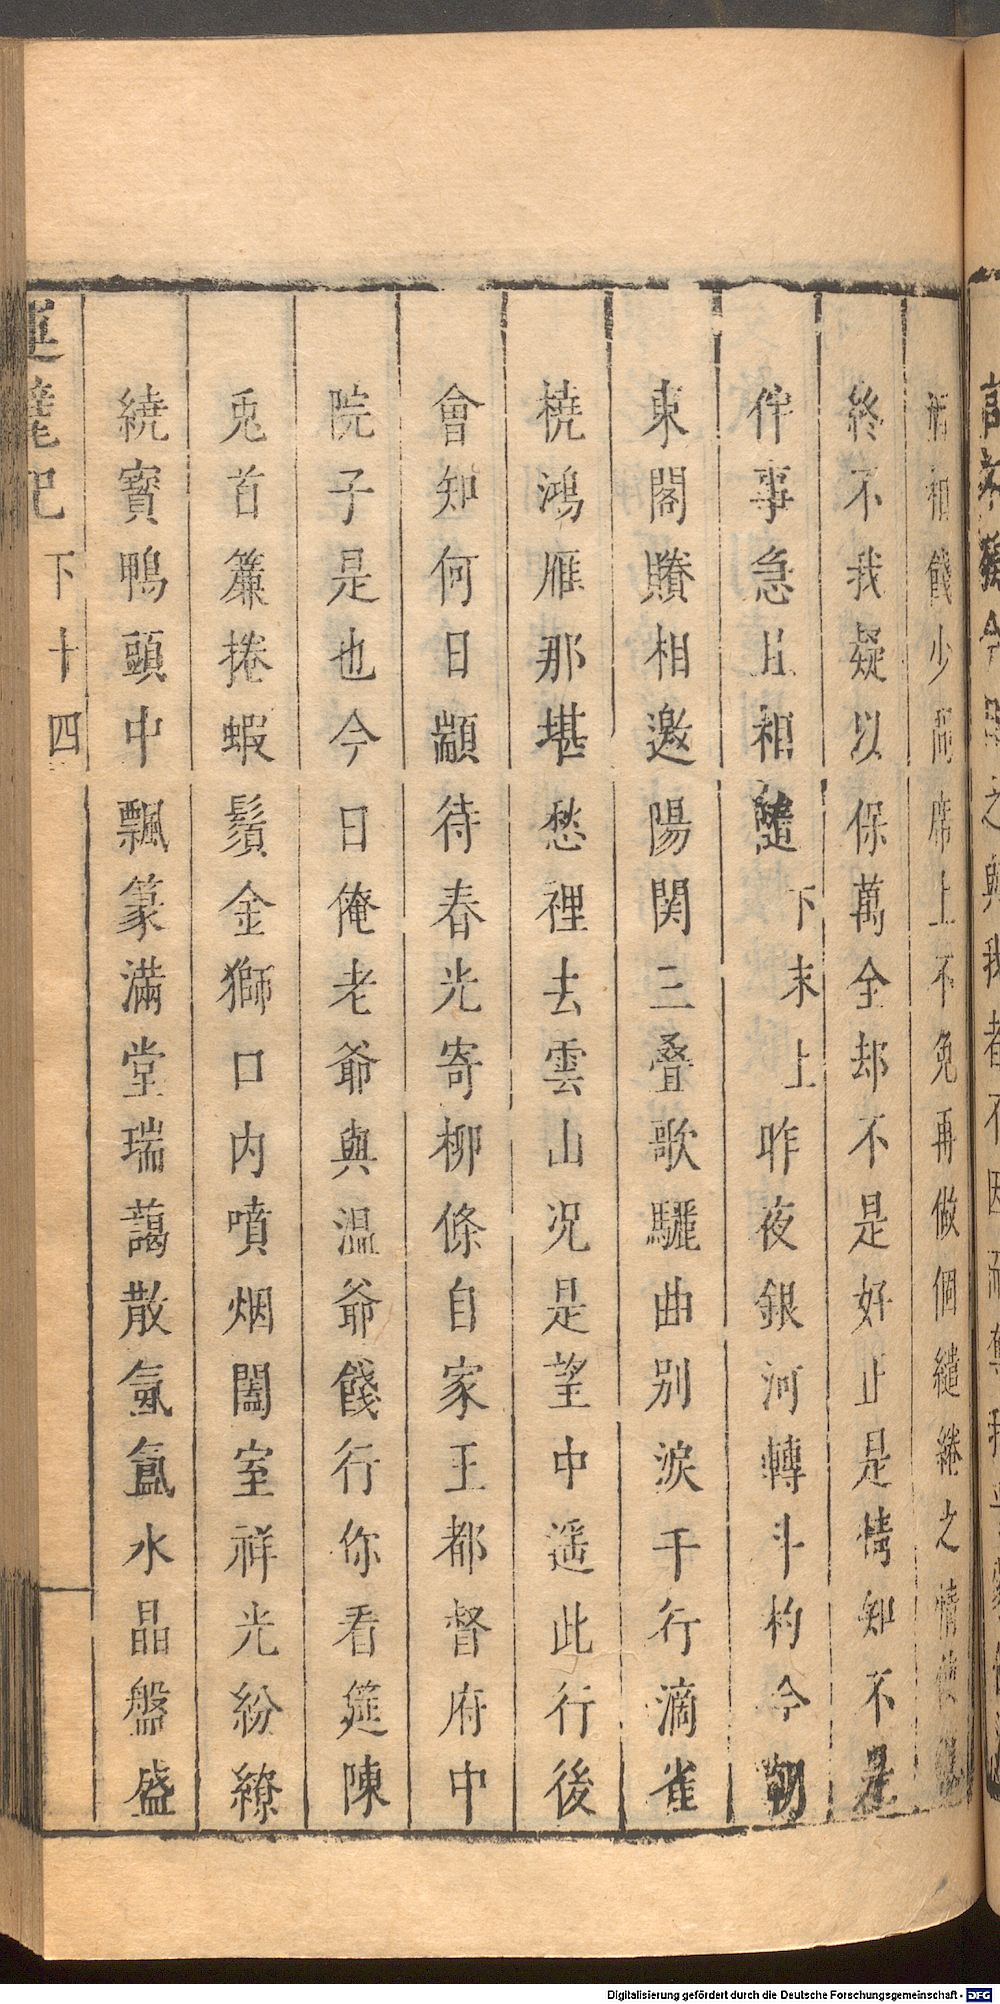 相餞少間席上不免再做個繾綣之情
終不我疑以保萬全却不是好正是情知不是
伴事急且相隨下末上昨夜銀河轉斗杓今朝
東閣賸相邀陽関三叠歌驪曲別淚千行滴雀
橈鴻雁那堪愁裡去雲山况是望中遥此行後
會知何日顓待春光寄柳條自家王都督府中
院子是也今日俺老爺與温爺餞行你看筵陳
兎首簾捲蝦鬚金獅口内噴烟闔室祥光紛繚
繞寶鴨頭中飄篆滿堂瑞藹散氤氲水晶盤盛
記 下 十四
Digitalisierung gefördert durch die Deutsche Forschungsgemeinschaft - DFG